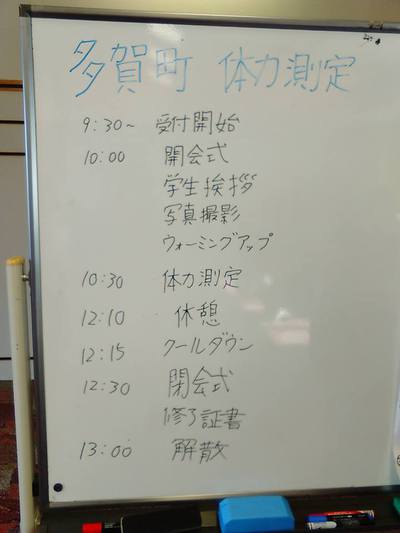 多賀町 体力測定
9:30~ 受付開始
10:00 開会式
学生挨拶
写真撮影
ウォーミングアップ
10:30 体力測定
12:10 休憩
12:15 クールダウン
12:30 閉会式
修了証書
13:00 解散